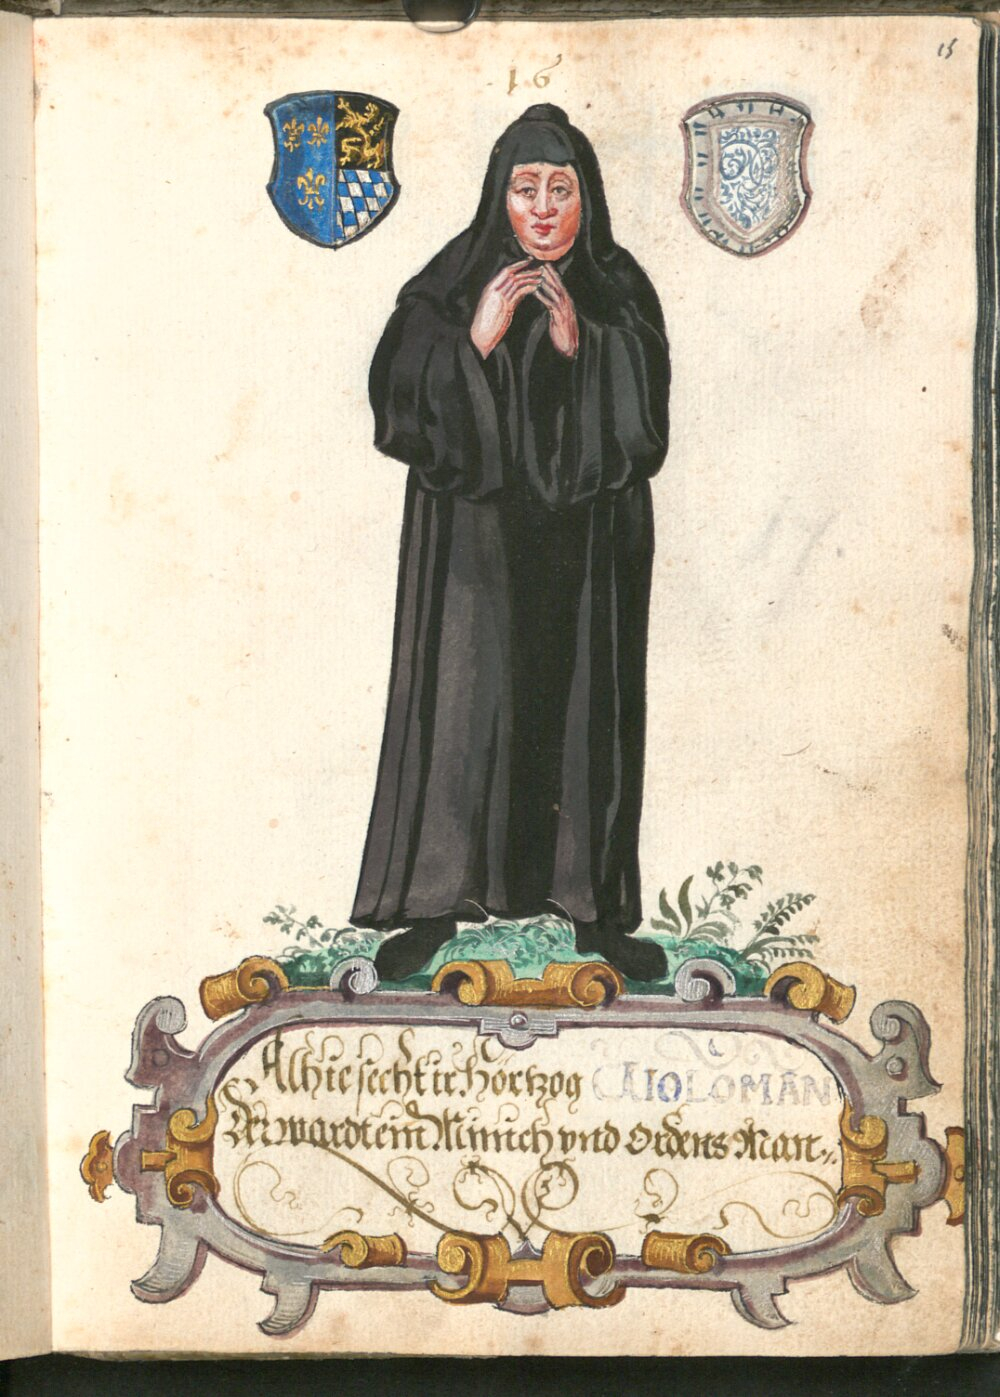 15
16
17.
Alhie secht ir Hörtzog CAIOLOMAN
Der wardt ein Münich vnd Ordens Man